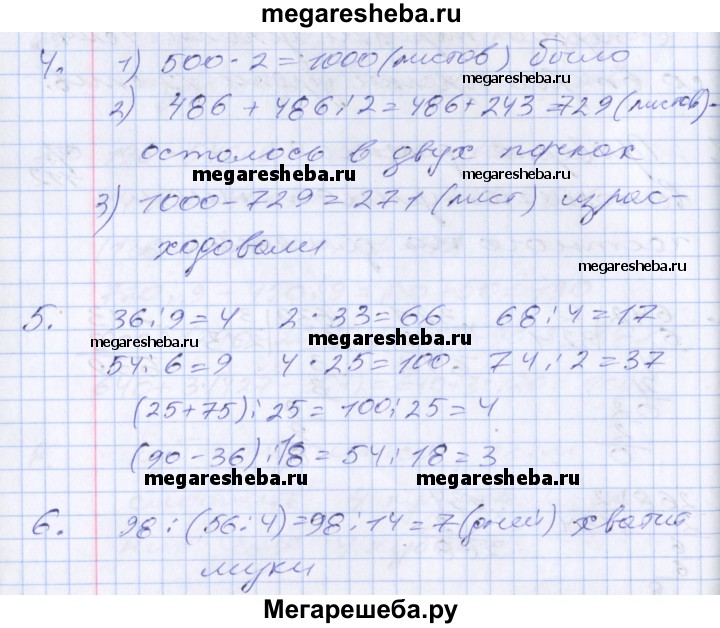 megaresheba.ru
4. 1) 500 · 2 = 1000 (листов) было
megaresheba.ru
2) 486 + 486 : 2 = 486 + 243 = 729 (листов) -
осталось в двух пачках
megaresheba.ru
3) 1000 - 729 = 271 (лист) израс-
ходовали
megaresheba.ru
5. 36 : 9 = 4 2 · 33 = 66 68 : 4 = 17
megaresheba.ru megaresheba.ru
54 : 6 = 9 4 · 25 = 100. 74 : 2 = 37
(25 + 75) : 25 = 100 : 25 = 4
(90 - 36) : 18 = 54 : 18 = 3
megaresheba.ru megaresheba.ru
6. 98 : (56 : 4) = 98 : 14 = 7 (дней) хватит
муки
Мегарешеба.ру